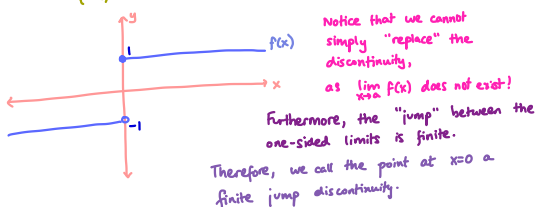 y
1
f(x)
x
-1
Notice that we cannot
simply "replace" the
discontinuity,
as lim x→a f(x) does not exist!
Furthermore, the "jump" between the
one-sided limits is finite.
Therefore, we call the point at x=0 a
finite jump discontinuity.